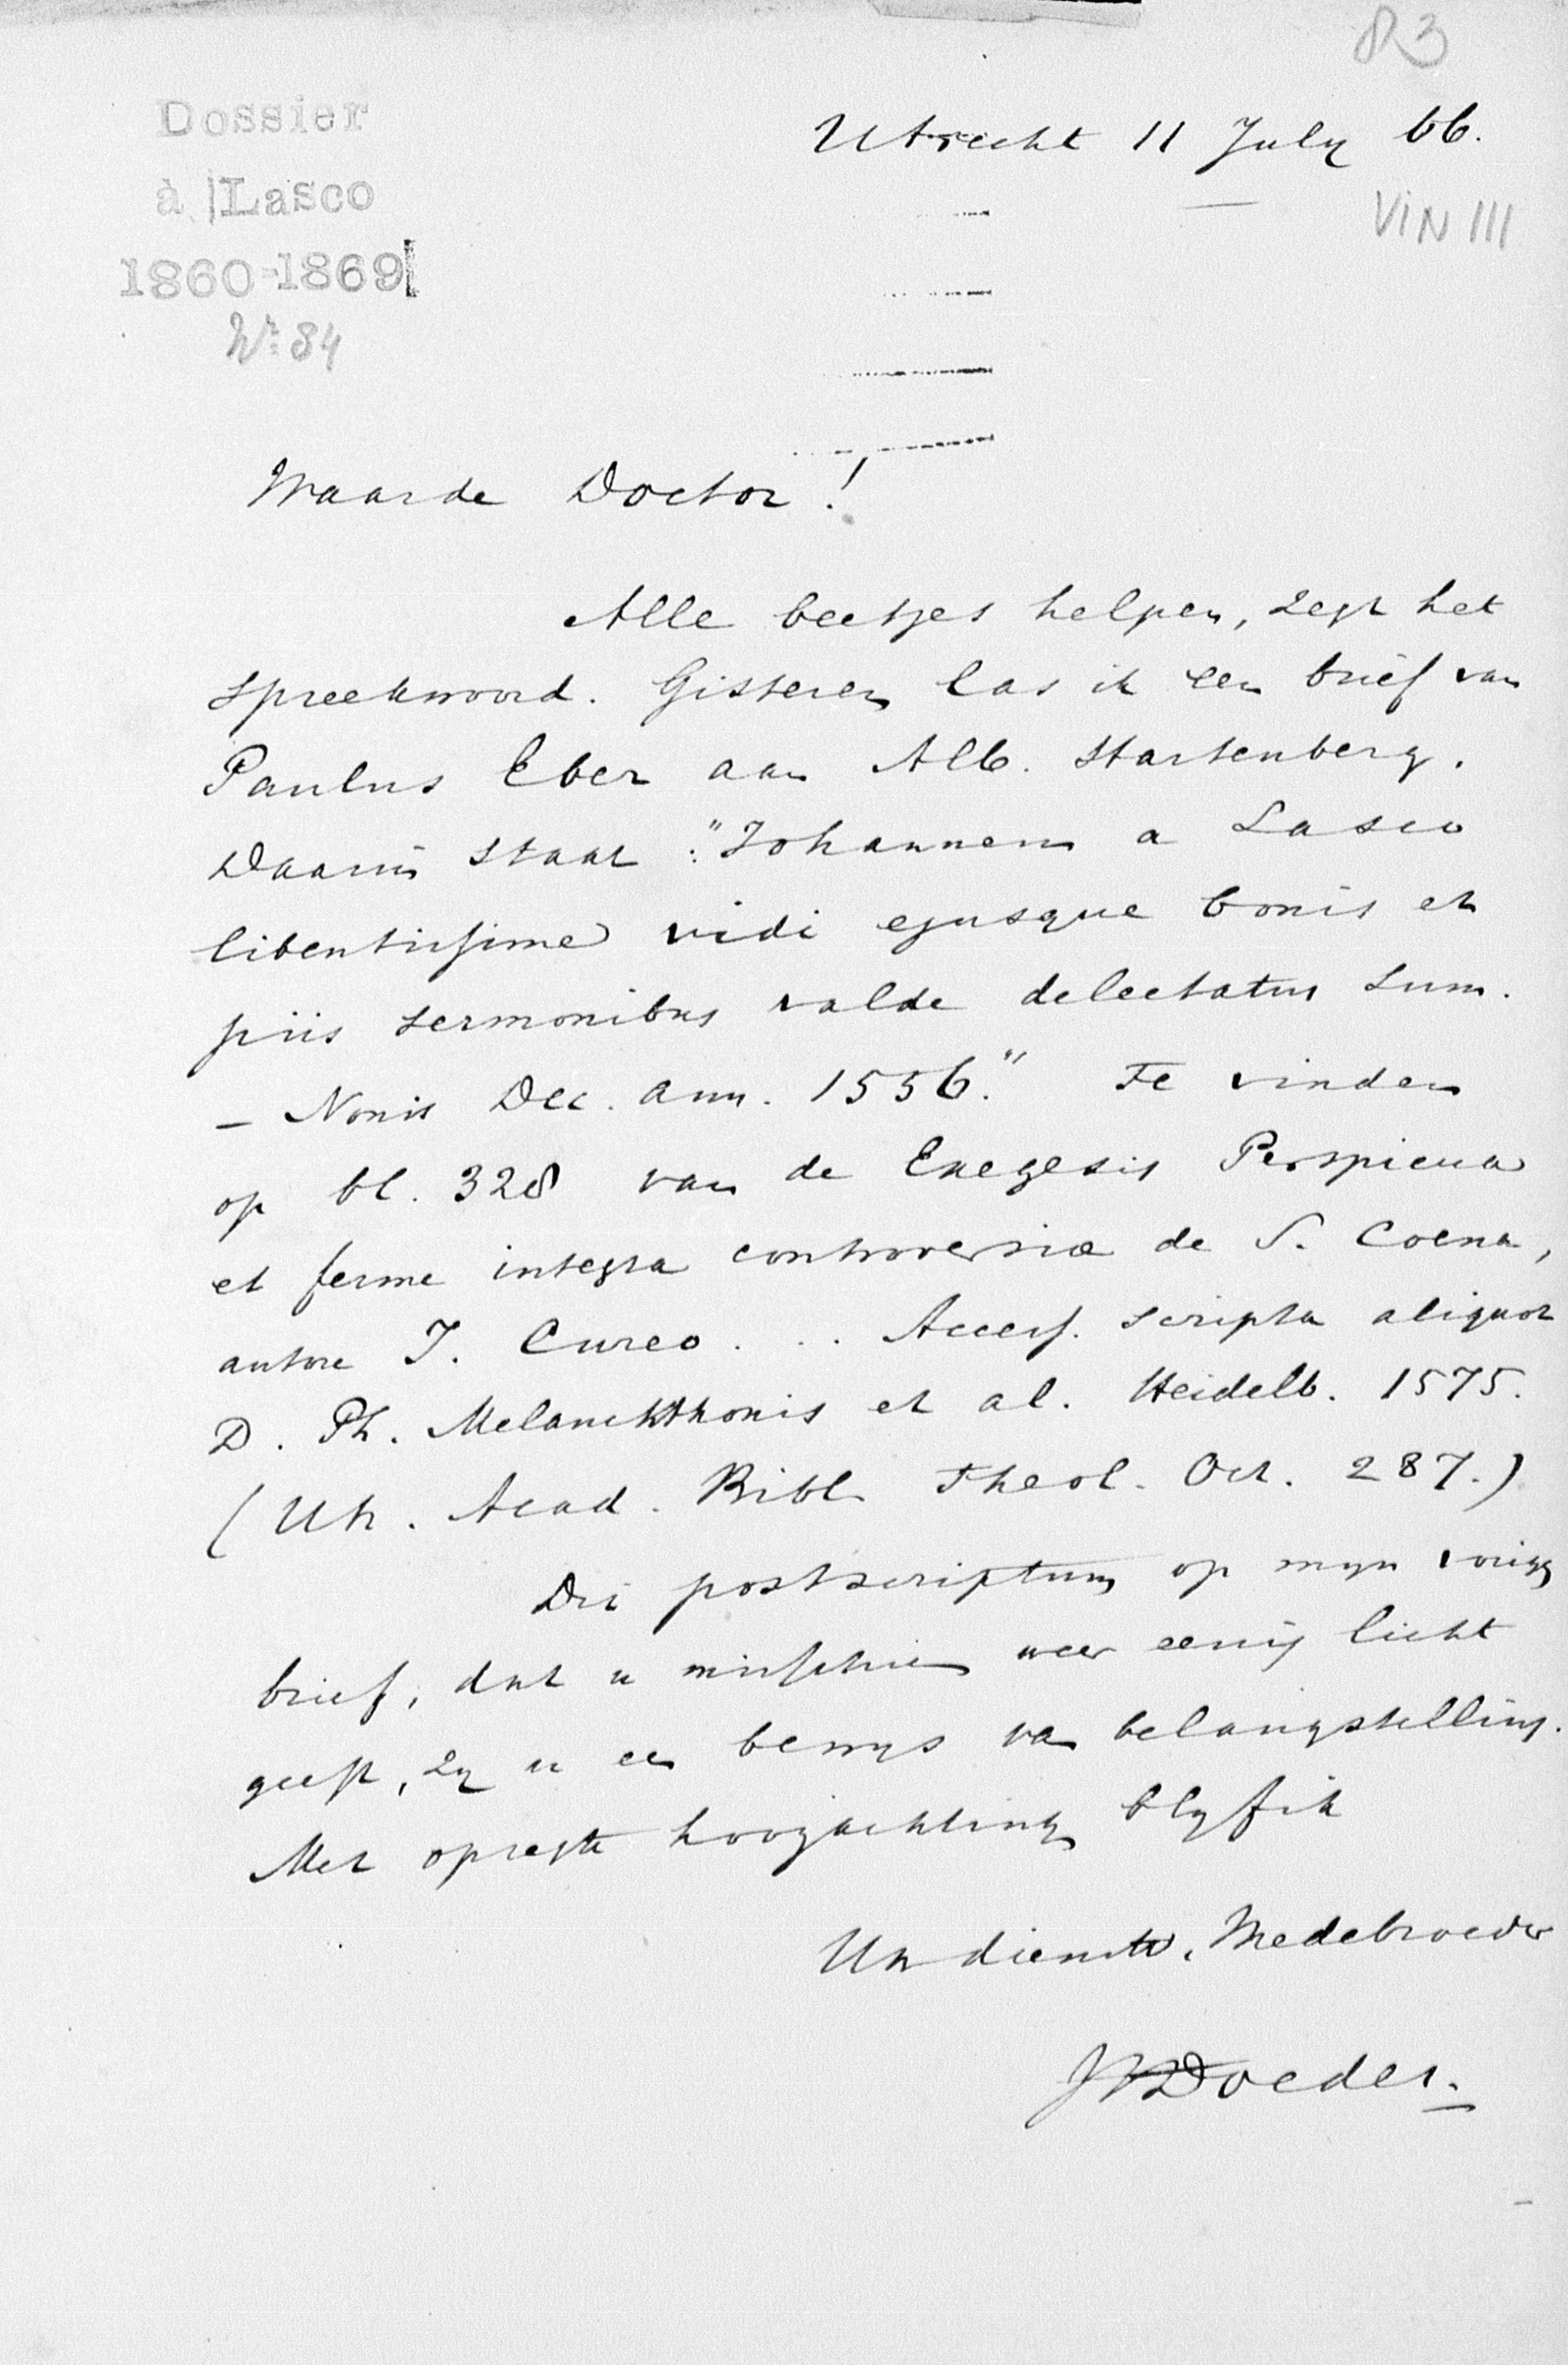 83
Dossier
à Lasco
1860-1869
No. 84
Utrecht 11 July 66.
VIN III
Waarde Doctor!
Alle beetjes helpen, zegt het
spreekwoord. Gisteren las ik een brief van
Paulus Eber aan Alb. Hartenberg.
Daarin staat: "Johannem a Lasco
libentissime vidi ejusque bonis et
piis sermonibus valde delectatus sum.
– Nonis Dec. ann. 1556." Te vinden
op bl. 328 van de Exegesis Perspicua
et ferme integra controversiæ de S. Coena,
autore J. Cureo . . . Access. scripta aliquot
D. Ph. Melanchthonis et al. Heidelb. 1575.
(Utr. Acad. Bibl. Theol. Oct. 287.)
Dit postscriptum op mijn vorige
brief, dat u misschien weer eenig licht
geeft, zij u een bewijs van belangstelling.
Met opregte hoogachting blijf ik
Uw dienstw. Medebroeder
JJDoedes.